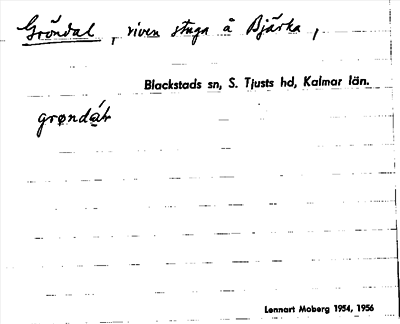 Gröndal, riven stuga å Bjärka,
Blackstads sn, S. Tjusts hd, Kalmar län.
Lennart Moberg 1954, 1956